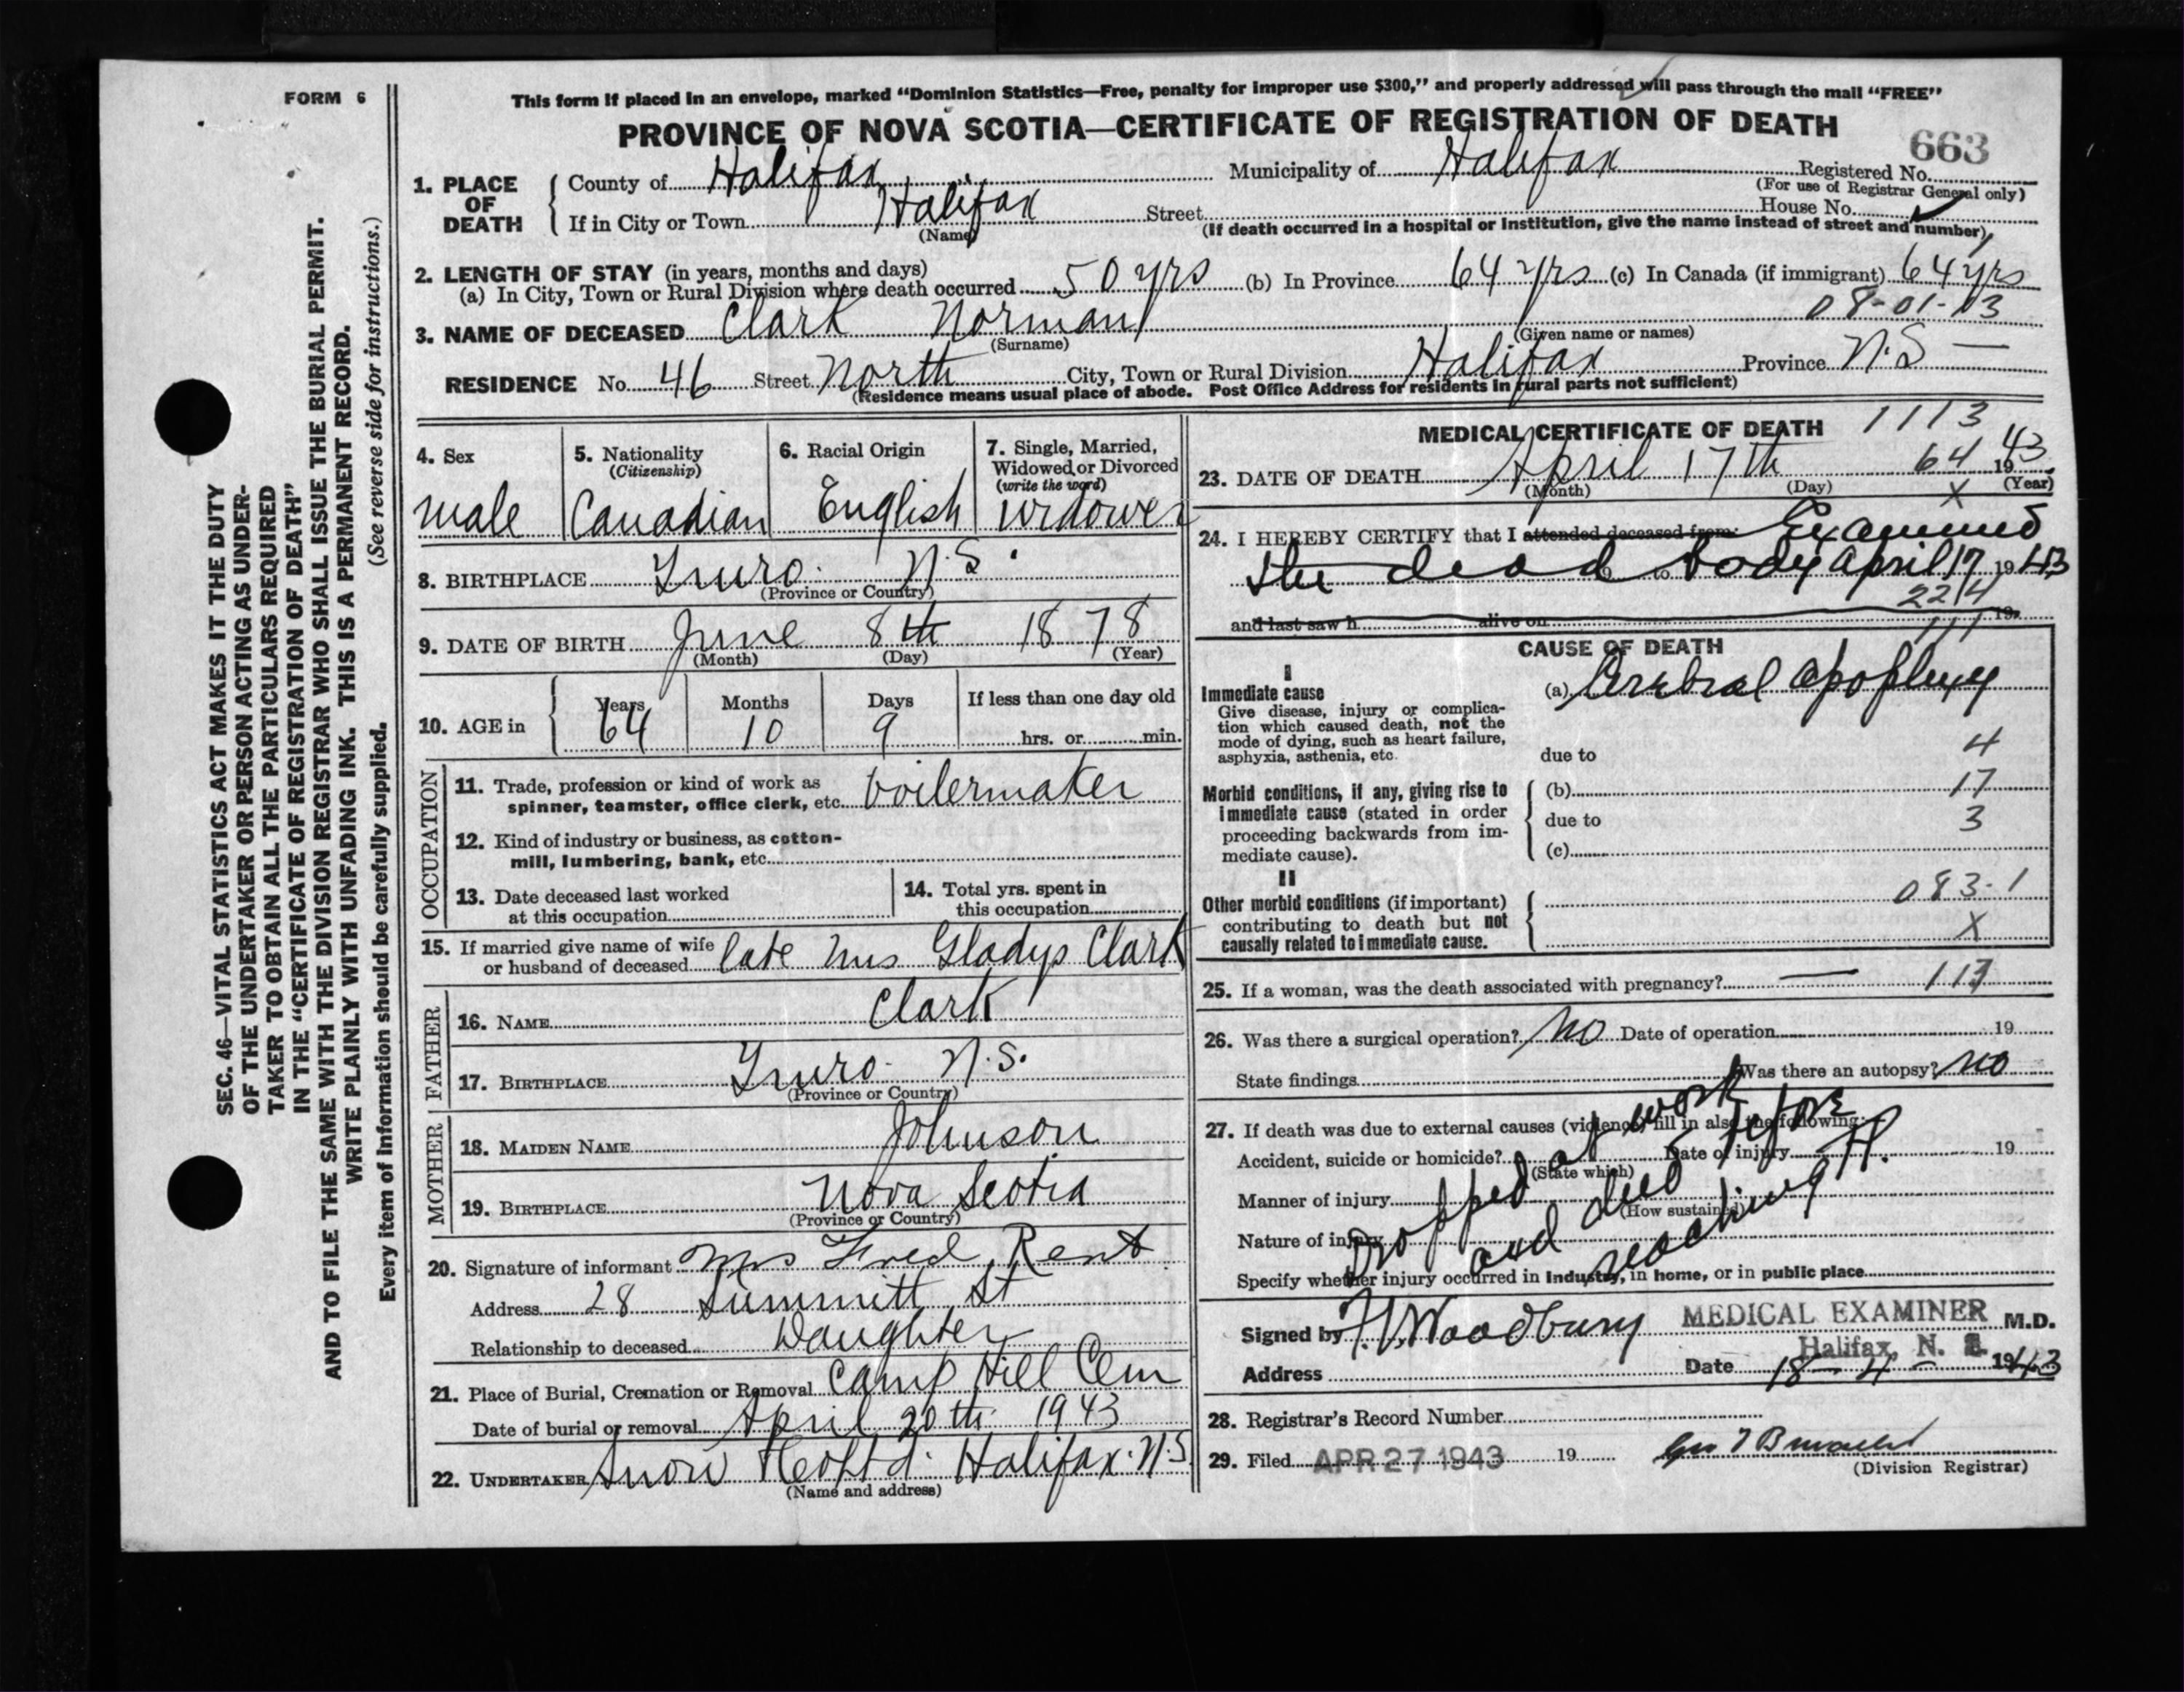 FORM 6
This form if placed in an envelope, marked “Dominion Statistics—Free, penalty for improper use $300,” and properly addressed will pass through the mail “FREE”
PROVINCE OF NOVA SCOTIA—CERTIFICATE OF REGISTRATION OF DEATH
663
1. PLACE OF DEATH { County of Halifax Municipality of Halifax Registered No.
(For use of Registrar General only)
If in City or Town Halifax Street House No.
(Name) (If death occurred in a hospital or institution, give the name instead of street and number)
2. LENGTH OF STAY (in years, months and days)
(a) In City, Town or Rural Division where death occurred 50 yrs (b) In Province 64 yrs (c) In Canada (if immigrant) 64 yrs
08-01-13
3. NAME OF DECEASED Clark Norman
(Surname) (Given name or names)
RESIDENCE No. 46 Street North City, Town or Rural Division Halifax Province N.S —
(Residence means usual place of abode. Post Office Address for residents in rural parts not sufficient)
4. Sex
male
5. Nationality
(Citizenship)
Canadian
6. Racial Origin
English
7. Single, Married,
Widowed or Divorced
(write the word)
widower
8. BIRTHPLACE Truro. N.S.
(Province or Country)
9. DATE OF BIRTH June 8th 1878
(Month) (Day) (Year)
10. AGE in { Years Months Days If less than one day old
64 10 9 hrs. or min.
OCCUPATION
11. Trade, profession or kind of work as
spinner, teamster, office clerk, etc. boilermaker
12. Kind of industry or business, as cotton-
mill, lumbering, bank, etc.
13. Date deceased last worked
at this occupation
14. Total yrs. spent in
this occupation
15. If married give name of wife
or husband of deceased late Mrs Gladys Clark
FATHER
16. NAME Clark
17. BIRTHPLACE Truro. N.S.
(Province or Country)
MOTHER
18. MAIDEN NAME Johnson
19. BIRTHPLACE Nova Scotia
(Province or Country)
20. Signature of informant Mrs Fred Rent
Address 28 Summitt St
Relationship to deceased Daughter
21. Place of Burial, Cremation or Removal Camp Hill Cem
Date of burial or removal April 20th 1943
22. UNDERTAKER Snow & Co Ltd. Halifax. N.S.
(Name and address)
MEDICAL CERTIFICATE OF DEATH 1113
23. DATE OF DEATH April 17th 64 1943
(Month) (Day) X (Year)
24. I HEREBY CERTIFY that I attended deceased from: Examined
the dead to body April 17 1943
2214
and last saw h alive on 19
111
CAUSE OF DEATH
I
Immediate cause
Give disease, injury or complica-
tion which caused death, not the
mode of dying, such as heart failure,
asphyxia, asthenia, etc.
(a) Cerebral apoplexy
due to 4
Morbid conditions, if any, giving rise to
immediate cause (stated in order
proceeding backwards from im-
mediate cause).
(b) 17
due to 3
(c)
II
Other morbid conditions (if important)
contributing to death but not
causally related to immediate cause.
083.1
X
25. If a woman, was the death associated with pregnancy? — 113
26. Was there a surgical operation? No Date of operation 19
State findings Was there an autopsy? No
27. If death was due to external causes (violence) fill in also the following:
Accident, suicide or homicide? Date of injury 19
(State which)
Manner of injury
(How sustained)
Nature of injury
Specify whether injury occurred in Industry, in home, or in public place
Dropped at work
and died before
reaching H.
Signed by F. V. Woodbury MEDICAL EXAMINER M.D.
Halifax, N. S.
Address Date 18-4-1943
28. Registrar's Record Number
29. Filed APR 27 1943 19
(Division Registrar)
SEC. 46—VITAL STATISTICS ACT MAKES IT THE DUTY
OF THE UNDERTAKER OR PERSON ACTING AS UNDER-
TAKER TO OBTAIN ALL THE PARTICULARS REQUIRED
IN THE “CERTIFICATE OF REGISTRATION OF DEATH”
AND TO FILE THE SAME WITH THE DIVISION REGISTRAR WHO SHALL ISSUE THE BURIAL PERMIT.
WRITE PLAINLY WITH UNFADING INK. THIS IS A PERMANENT RECORD.
Every item of information should be carefully supplied. (See reverse side for instructions.)